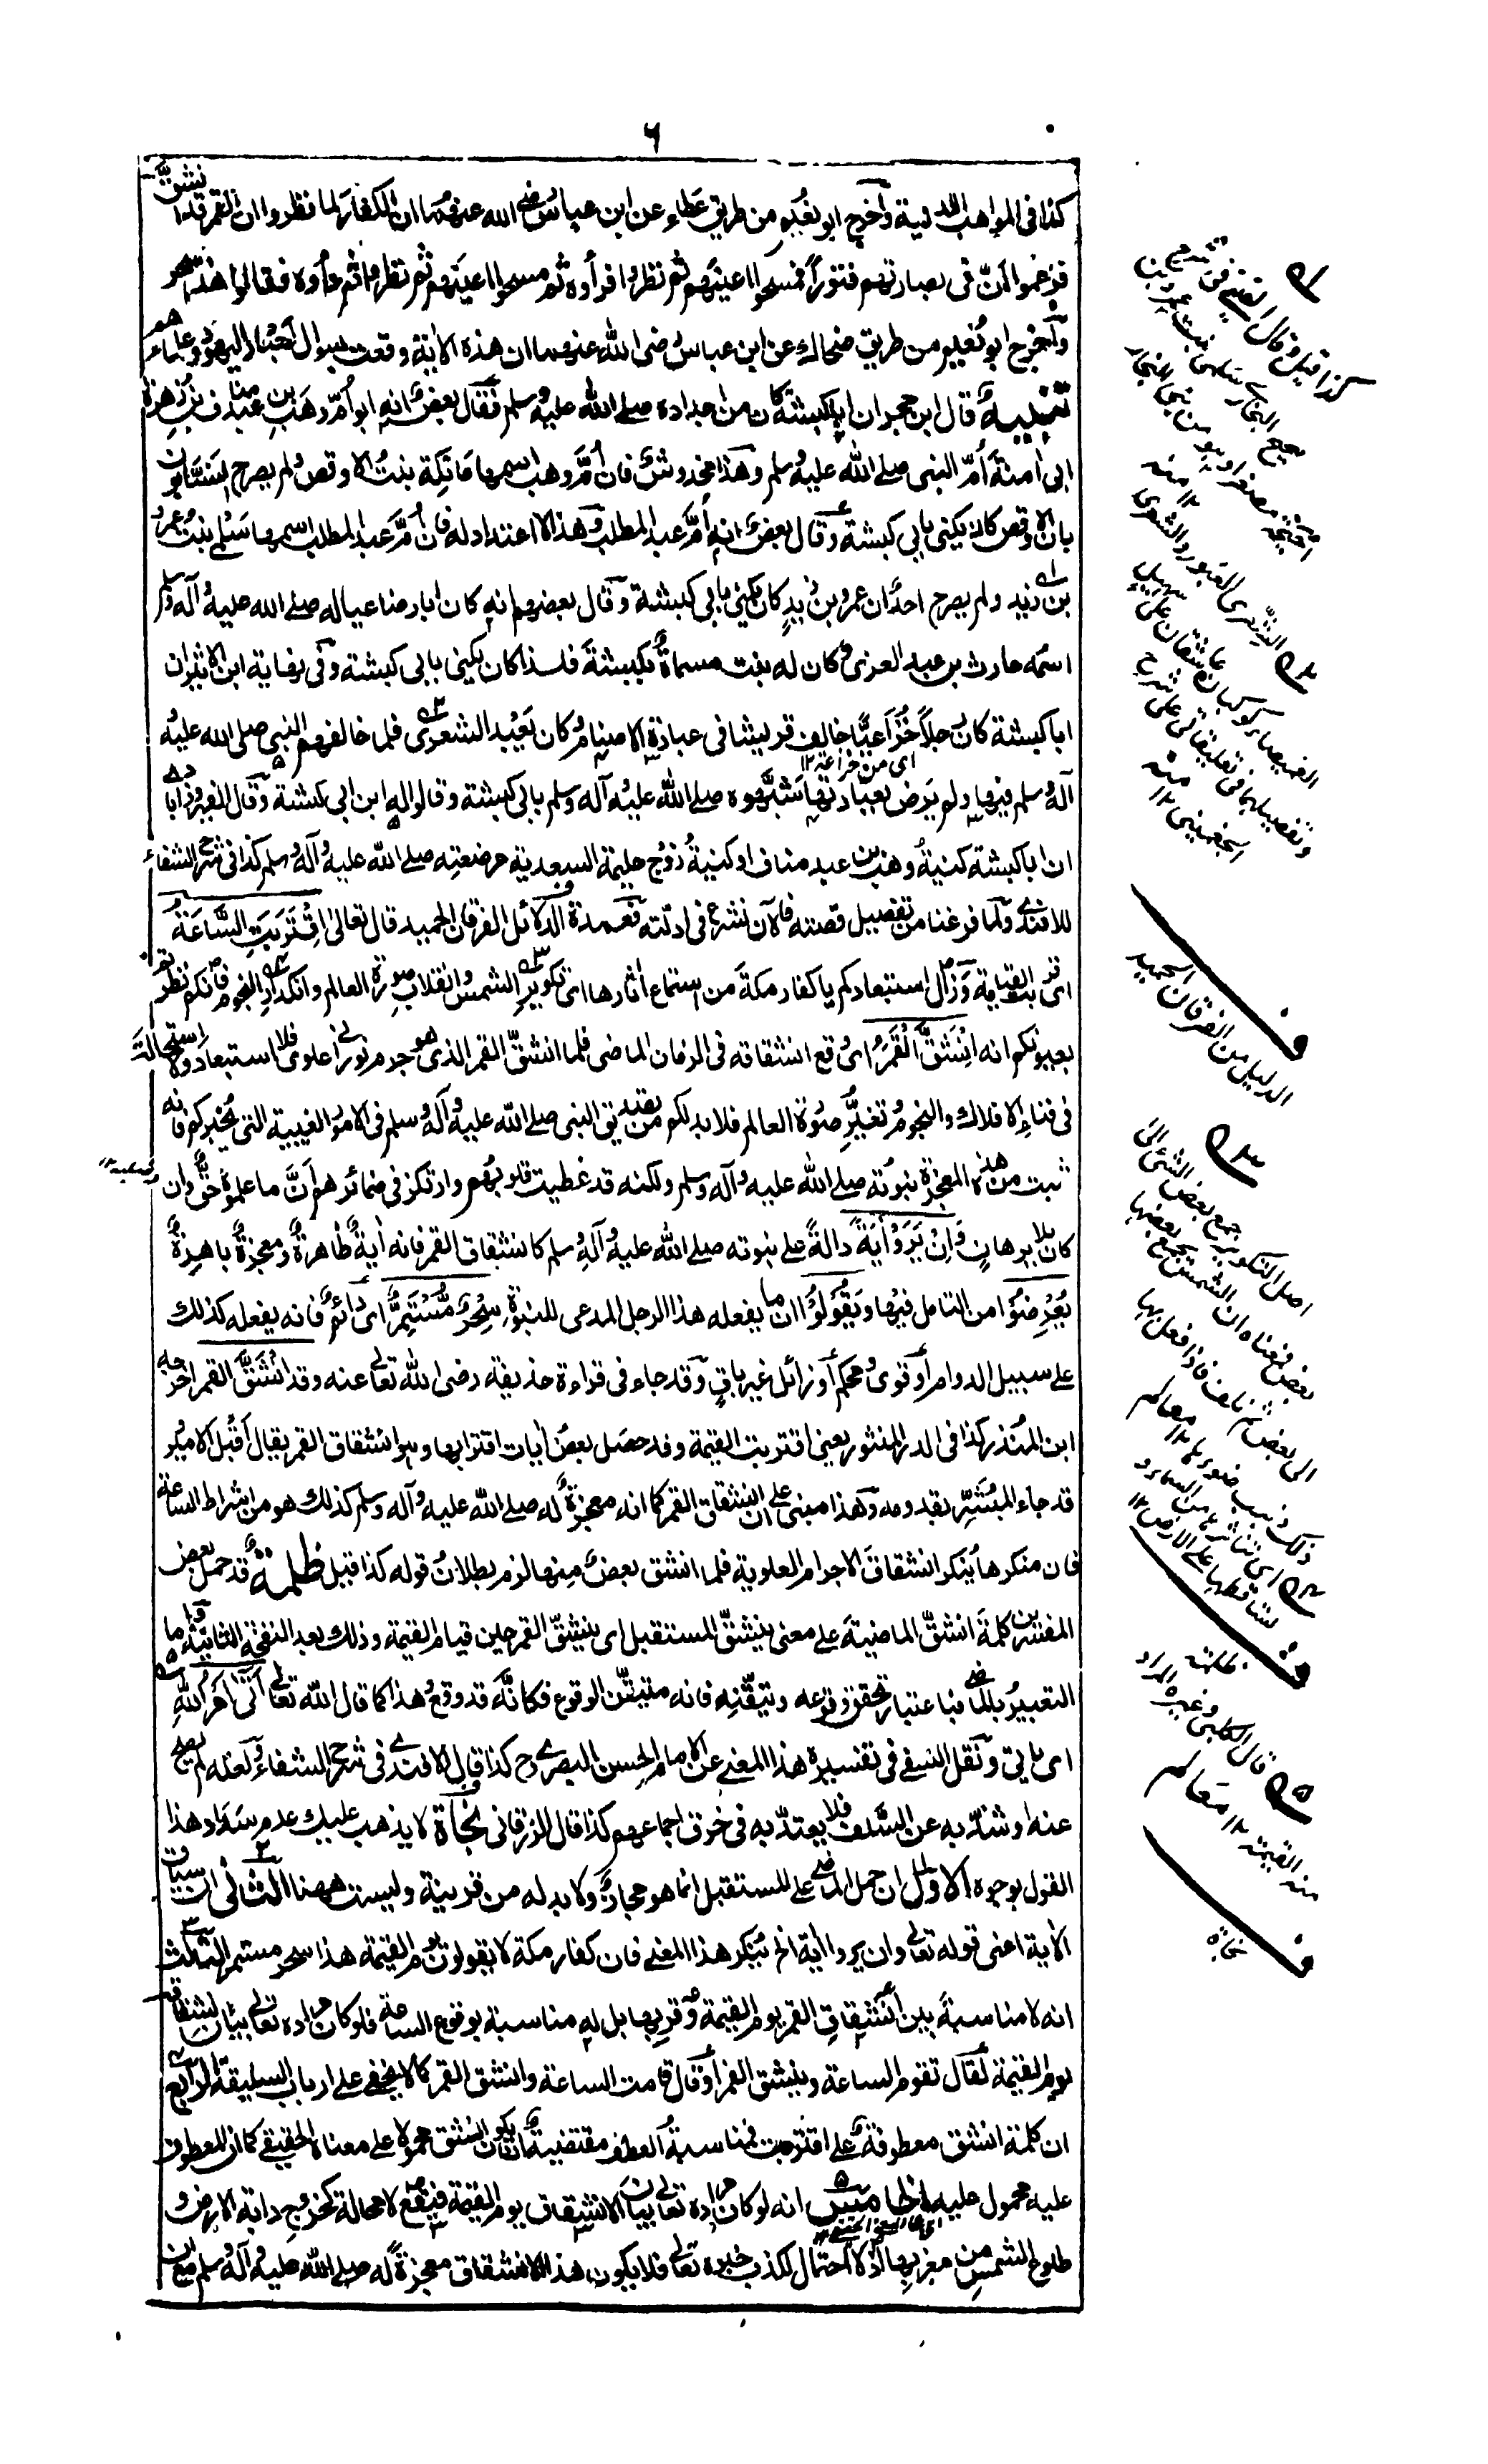 ٦
كذا فى المواهب اللدنية وأخرج ابو نعيم من طريق عطاء عن ابن عباس رضى الله عنهما ان الكفار لما نظروا ان القمر قد انشق
فزعموا ان فى بصارتهم فتوراً فمسحوا اعينهم ثم نظروا فرأوه ثم مسحوا اعينهم ثم نظروا ثم رأوه فقالوا هذا سحر
وأخرج ابو نعيم من طريق ضحاك عن ابن عباس رضى الله عنهما ان هذه الآية وقعت بسوال احبار اليهود وعلماءهم
تنبيه قال ابن حجر ان ابا كبشة كان من اجداده صلے الله عليه وسلم فقال بعض انه ابو أم وهب بن عبد مناف بن زهرة
ابى آمنة أم النبى صلے الله عليه وسلم وهذا مخدوش فان أم وهب اسمها عاتكة بنت الاوقص ولم يصرح النسابون
بان الاوقص كان يكنى بابى كبشة وقال بعض انه أم عبد المطلب وهذا لا اعتداد له فان أم عبد المطلب اسمها سلمے بنت عمرو
بن زيد ولم يصرح احد ان عمرو بن زيد كان يكنى بابى كبشة وقال بعضهم انه كان ابا رضاعيا له صلے الله عليه وآله وسلم
اسمه حارث بن عبد العزى وكان له بنت مسماة بكبشة فلذا كان يكنى بابى كبشة وفى نهاية ابن الاثير ان
ابا كبشة كان رجلاً خزاعياً خالف قريشا فى عبادة الاصنام وكان يعبد الشعرى فلما خالفهم النبى صلى الله عليه
اى من خزاعة ١٢
وآله وسلم فيها ولم يرض بعبادتها شبهوه صلے الله عليه وآله وسلم بابى كبشة وقالوا له ابن ابى كبشة وقال الفيروزآبادى
ان ابا كبشة كنية وهب بن عبد مناف او كنية زوج حليمة السعدية مرضعته صلے الله عليه وآله وسلم كذا فى شرح الشفاء
للافندے ولما فرغنا من تفصيل قصته فالآن نشرع فى ادلته فعمدة الدلائل الفرقان الحميد قال تعالى اقتربت الساعة
اى قربت القيامة وزال استبعادكم يا كفار مكة من استماع آثارها اى تكوير الشمس وانقلاب صورة العالم وانكدار النجوم فانكم نظرتم
بعيونكم انه انشق القمر اى وقع انشقاقه فى الزمان الماضى فلما انشق القمر الذى هو جرم نورانى علوى فلا استبعاد ولا استحالة
فى فناء الافلاك والنجوم وتغير صورة العالم فلا بد لكم من تصديق النبى صلے الله عليه وآله وسلم فى الامور الغيبية التى يخبركم فانه
ثبت من هذه المعجزة نبوته صلے الله عليه وآله وسلم ولكنه قد غطيت قلوبهم وارتكز فى ضمائرهم ان ما علموه حق وان
كان بلا برهان وان يروا آية دالة على نبوته صلے الله عليه وآله وسلم كانشقاق القمر فانه آية ظاهرة ومعجزة باهرة
يعرضوا من التامل فيها ويقولوا ان ما يفعله هذا الرجل المدعى للنبوة سحر مستمر اى دائم فانه يفعله كذلك
على سبيل الدوام أو قوى محكم أو زائل غير باق وقد جاء فى قراءة حذيفة رضى الله تعالے عنه وقد انشق القمر اخرجه
ابن المنذر كذا فى الدر المنثور يعنى اقتربت القيمة وقد حصل بعض آيات اقترابها وهو انشقاق القمر يقال أقبل الامير
قد جاء المبشر بقدومه وهذا مبنى على ان انشقاق القمر كما انه معجزة له صلے الله عليه وآله وسلم كذلك هو من اشراط الساعة
فان منكرها ينكر انشقاق الاجرام العلوية فلما انشق بعض منها لزم بطلان قوله كذا قيل ظلمة قد حمل بعض
المفسرين كلمة انشق الماضية على معنى ينشق المستقبل اى ينشق القمر حين قيام القيمة وذلك بعد النفخة الثانية واما
التعبير بالماضى فباعتبار تحقق وقوعه وتيقنه فانه متيقن الوقوع فكانه قد وقع هذا كما قال الله تعالے اتى امر الله
اى ياتى ونقل النسفے فى تفسيره هذا المعنے عن الامام الحسن البصرے رح كذا قال الافندے فى شرح الشفاء ولعله لم يصح
عنه او شذ به عن السلف فلا يعتد به فى خرق اجماعهم كذا قال الزرقانى نجاة لا يذهب عليك عدم سداد هذا
القول بوجوه الاول ان حمل الماضى على المستقبل انما هو مجاز ولا بد له من قرينة وليست ههنا الثانى ان سياق
الآية اعنى قوله تعالے وان يروا آية الخ ينكر هذا المعنے فان كفار مكة لا يقولون يوم القيمة هذا سحر مستمر الثالث
انه لا مناسبة بين انشقاق القمر يوم القيمة وقربها بل له مناسبة بوقوع الساعة فلو كان مراده تعالے بيان انشقاقه
يوم القيمة لقال تقوم الساعة وينشق القمر أو قال قامت الساعة وانشق القمر كما لا يخفى على ارباب السليقة الرابع
ان كلمة انشق معطوفة على اقتربت فمناسبة العطف مقتضية ان يكون انشق محمولا على معناه الحقيقے كما ان المعطوف
عليه محمول عليه الخامس انه لو كان مراده تعالے بيان الانشقاق يوم القيمة فيقع لا محالة كخروج دابة الارض و
طلوع الشمس من مغربها اذ لا احتمال لكذب خبره تعالے فلا يكون هذا الانشقاق معجزة له صلے الله عليه وآله وسلم مع ان
الدليل من الفرقان الحميد
اصل التكوير جمع بعض الشئ الى
بعض فمعناه ان الشمس يجمع بعضها
الى بعض ثم تلف فاذا فعل بها
ذلك ذهب ضوءها ١٢ معالم
اى تتناثر من السماء و
تتساقط على الارض ١٢
ظلمة
قال الكلبى وغيره المراد
منه القيمة ١٢ معالم
نجاة